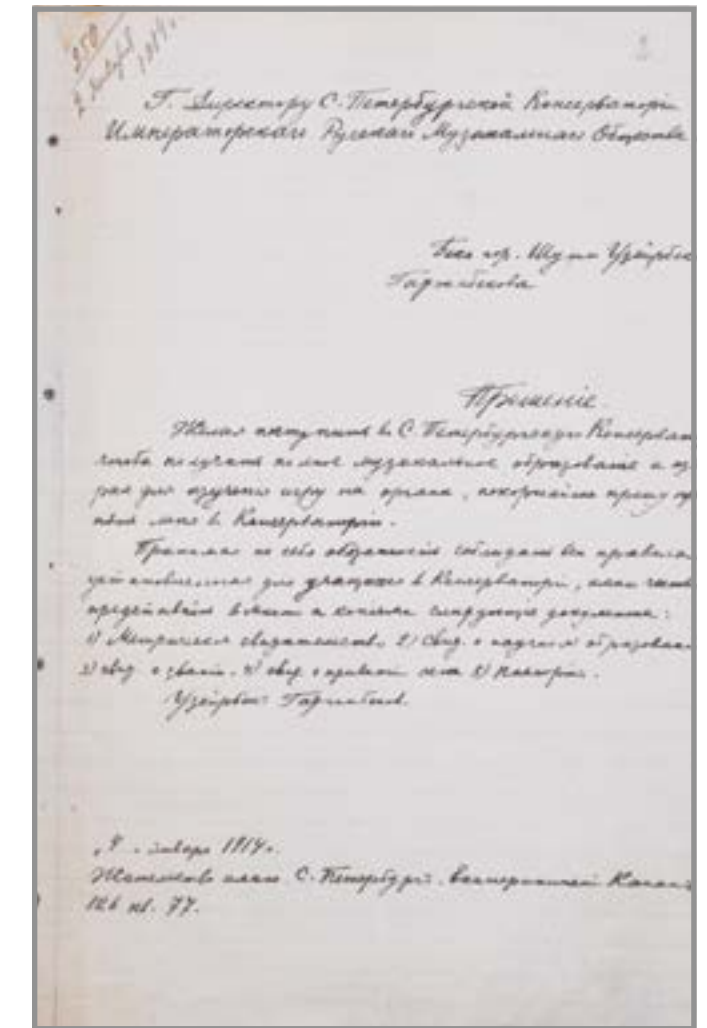 250
2 января
1914 г.
2
Г. Директору С. Петербургской Консерваторіи
Императорскаго Русскаго Музыкальнаго Общества
Бека гор. Шуши Узеирбека
Гаджибекова
Прошеніе.
Желая поступить въ С. Петербургскую Консерват
чтобы получить полное музыкальное образованіе и
для изученія игры на органѣ, покорнѣйше прошу
меня въ Консерваторію.
Принимая на себя обязанность соблюдать всѣ правила
установленныя для учащихся въ Консерваторіи, имѣю честь
представить вмѣстѣ съ копіями слѣдующіе документы:
1) Метрическое свидѣтельство 2) Свид. о образован
3) свид. о званіи. 4) свид. о оспы 5)
Узеирбекъ Гаджибековъ.
января 1914 г.
С. Петербургъ. Екатерининскій Канал
126 кв. 77.